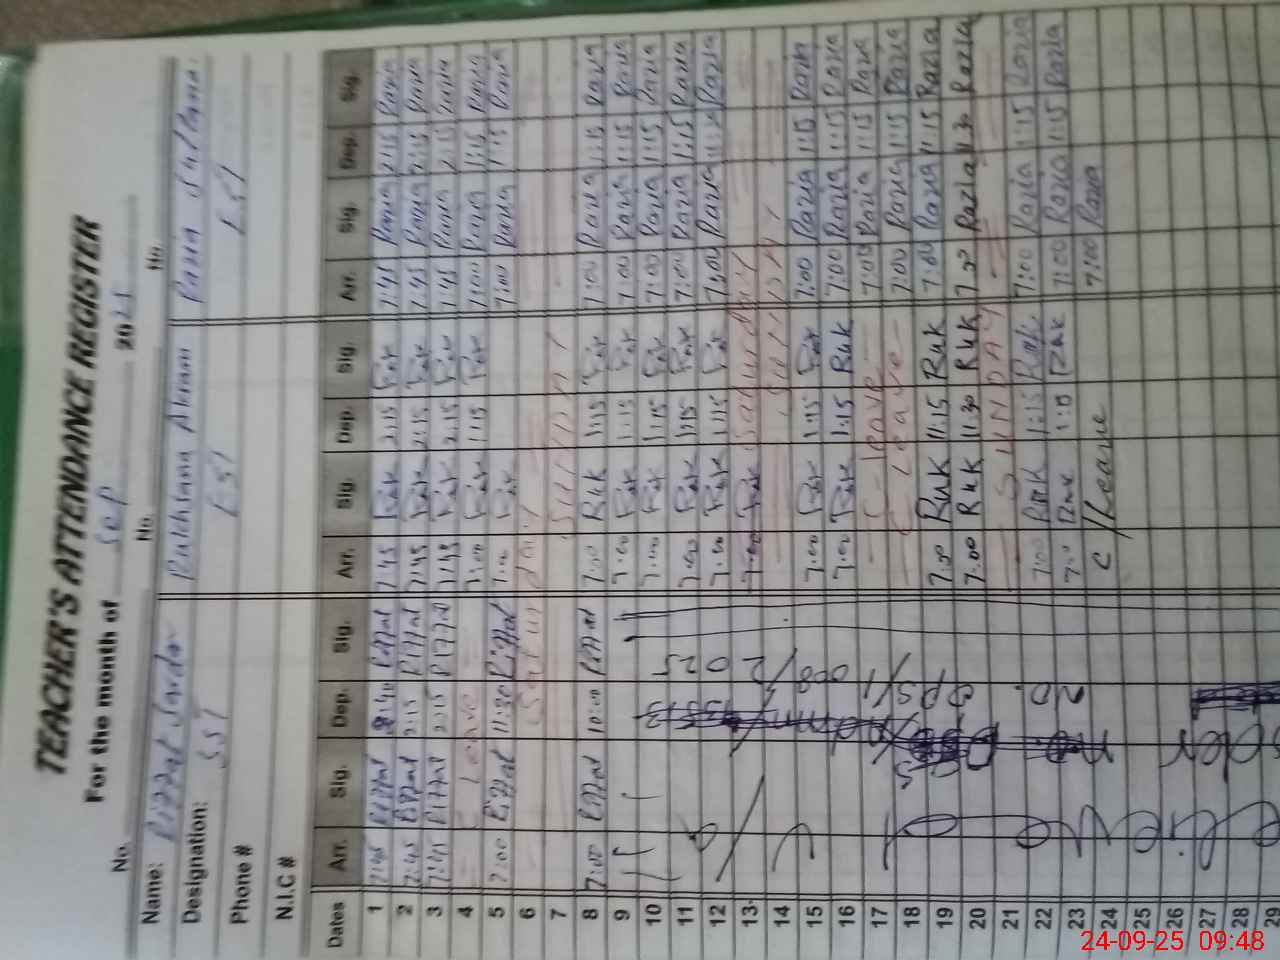 TEACHER'S ATTENDANCE REGISTER
For the month of Sep 2025
No. No. No.
Name: Riffat Sardar Rukhsana Akram Razia Sultana
Designation: SST EST EST
Phone #
N.I.C #
Dates Arr. Sig. Dep. Sig. Arr. Sig. Dep. Sig. Arr. Sig. Dep. Sig.
1 7:45 Riffat Riffat 7:45 Ruk 2:15 Ruk 7:45 Razia 2:15 Razia
2 7:45 Riffat 2:15 Riffat 7:45 Ruk 2:15 Ruk 7:45 Razia 2:15 Razia
3 7:45 Riffat 2:15 Riffat 7:45 Ruk 2:15 Ruk 7:45 Razia 2:15 Razia
4 Leave 7:00 Ruk 1:15 Ruk 7:00 Razia 1:15 Razia
5 7:00 Riffat 11:30 Riffat 7:00 Ruk 7:00 Razia 1:15 Razia
6
7 SUNDAY
8 7:00 Riffat 10:00 Riffat 7:00 Ruk 1:15 Ruk 7:00 Razia 1:15 Razia
9 7:00 Ruk 1:15 Ruk 7:00 Razia 1:15 Razia
10 7:00 Ruk 1:15 Ruk 7:00 Razia 1:15 Razia
11 7:00 Ruk 1:15 Ruk 7:00 Razia 1:15 Razia
12 7:00 Ruk 1:15 Ruk 7:00 Razia 1:15 Razia
13 7:00 Ruk Saturday
14 SUNDAY
15 7:00 Ruk 1:15 Ruk 7:00 Razia 1:15 Razia
16 7:00 Ruk 1:15 Ruk 7:00 Razia 1:15 Razia
17 C-leave 7:00 Razia 1:15 Razia
18 C leave 7:00 Razia 1:15 Razia
19 7:00 Ruk 11:15 Ruk 7:00 Razia 1:15 Razia
20 7:00 Ruk 11:30 Ruk Razia Razia
21 SUNDAY
22 7:00 Ruk 1:15 Ruk 7:00 Razia 1:15 Razia
23 Ruk Ruk 7:00 Razia 1:15 Razia
24 C/Leave 7:00 Razia
25
26
27
28
29
24-09-25 09:48